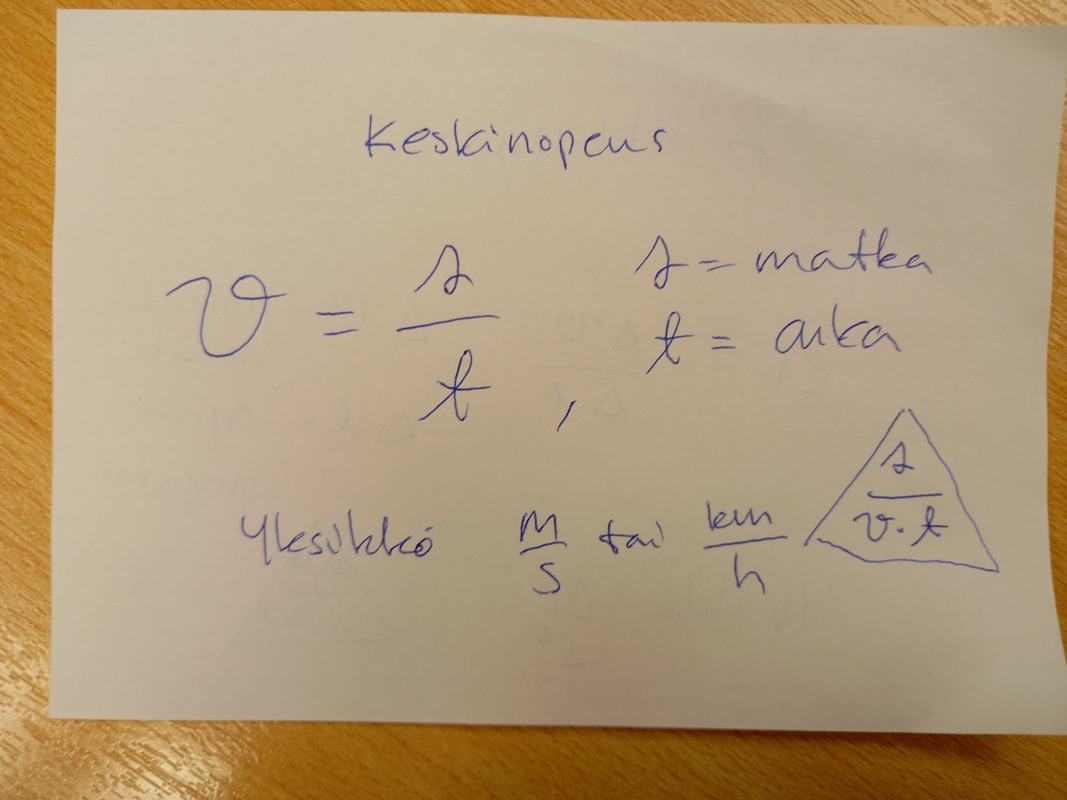 Keskinopeus
v = s/t , s = matka
t = aika
Yksikkö m/s tai km/h
s
v · t